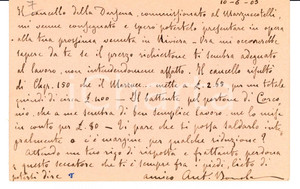 10-6-03
Il cancello della Darsena, commissionato al Mazzucotelli,
mi venne consegnato e spero potertelo presentare in opera
alla tua prossima venuta in Riviera - Ora mi occorrerebbe
sapere da te se il prezzo richiestone ti sembra adeguato
al lavoro, non intendendomene affatto. Il cancello risulta
di Chgr. 150 che il Mazzuc. mette a £ 2.65 per un totale
quindi di circa £ 400 = Il battente pel portone di Corce
nio, che a me sembra di ben semplice lavoro, me lo mise
in conto per £ 80 - Ti pare che si possa saldarlo inte
gralmente o c'è margine per qualche riduzione?
Attendo un tuo rigo di risposta e frattanto perdona
a questo seccatore che ti è sempre fra i piedi, lascia
dire
amico